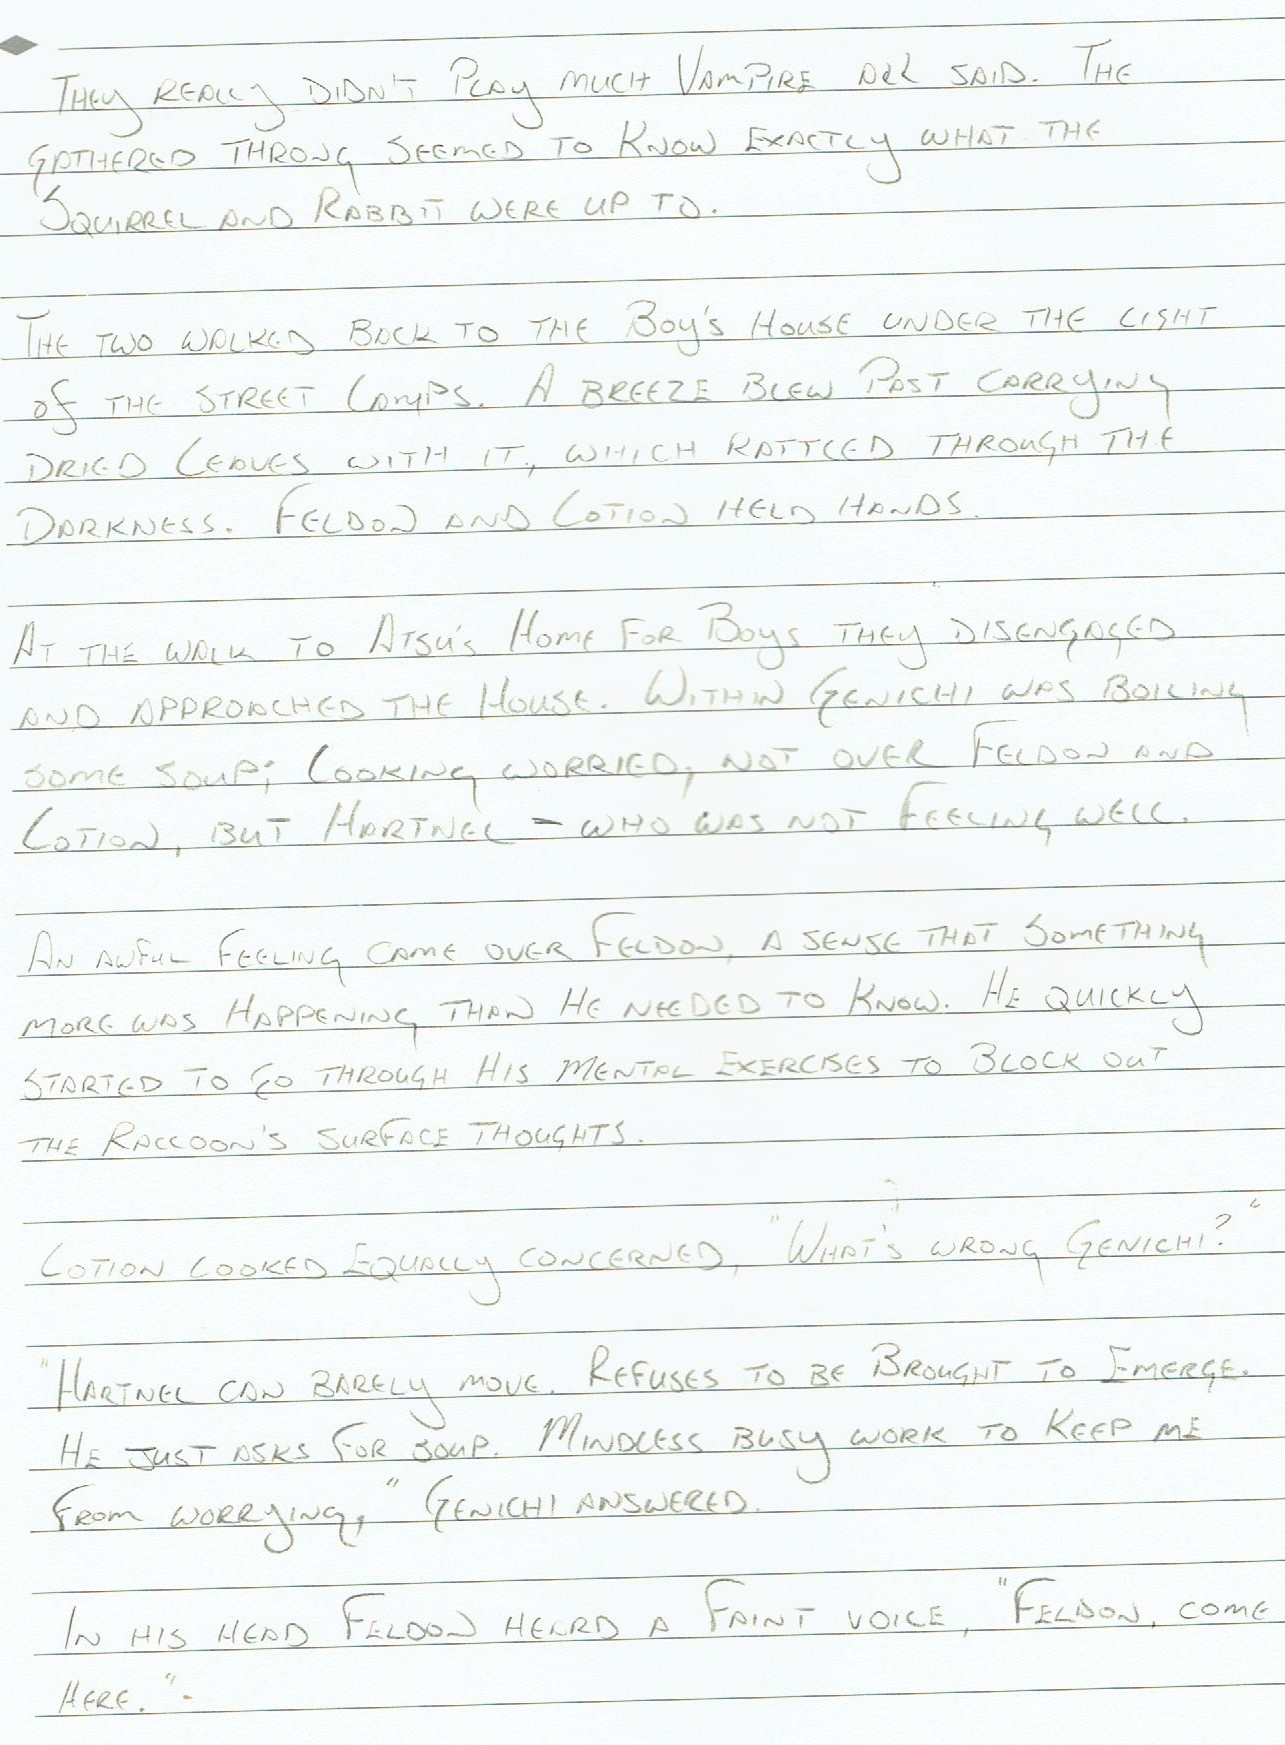 They really didn't play much Vampire all said. The
gathered throng seemed to know exactly what the
Squirrel and Rabbit were up to.
The two walked back to the Boy's House under the light
of the street lamps. A breeze blew past carrying
dried leaves with it, which rattled through the
darkness. Feldon and Lotion held hands.
At the walk to Atsu's Home for Boys they disengaged
and approached the House. Within Genichi was boiling
some soup; looking worried, not over Feldon and
Lotion, but Hartnel - who was not feeling well.
An awful feeling came over Feldon, a sense that something
more was happening than he needed to know. He quickly
started to go through his mental exercises to block out
the Raccoon's surface thoughts.
Lotion looked equally concerned, "What's wrong Genichi?"
"Hartnel can barely move. Refuses to be brought to Emerge.
He just asks for soup. Mindless busy work to keep me
from worrying," Genichi answered.
In his head Feldon heard a faint voice, "Feldon, come
here."-